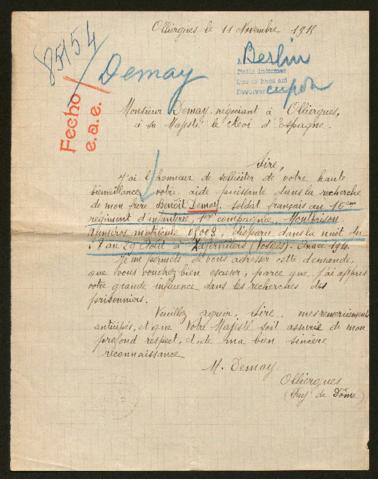 85154
Olliergues le 11 Novembre 1915
Berlin
Demay
Fecho
e.a.e.
Monsieur Demay, négociant à Olliergues,
à sa Majesté le Roi d'Espagne.
Sire,
J'ai l'honneur de solliciter de votre haute
bienveillance votre aide puissante dans la recherche
de mon frère Benoît Demay, soldat français au 16eme
régiment d'infanterie, 1ere compagnie, Montbrison
numéros matricule disparu dans la nuit du
28 au 29 Août à (Vosges). Année 1914.
Je me permets de vous adresser cette demande,
que vous voudrez bien excuser, parce que j'ai appris
votre grande influence dans les recherches des
prisonniers.
Veuillez agréer, Sire, mes remerciements
anticipés, et que Votre Majesté soit assurée de mon
profond respect, et de ma bien sincère
reconnaissance.
M. Demay
Olliergues
(Puy de Dôme)